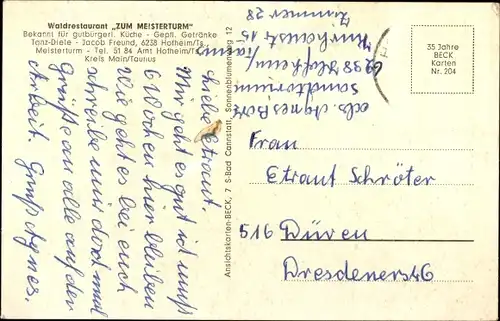 Waldrestaurant „ZUM MEISTERTURM"
Bekannt für gutbürgerl. Küche - Gepfl. Getränke
Tanz-Diele - Jacob Freund, 6238 Hofheim/Ts.
Meisterturm - Tel. 51 84 Amt Hofheim/Ts.
Kreis Main/Taunus
Liebe Etraut.
Mir geht es gut ich muß
6 Wochen hier bleiben
wie geht es bei euch
schreibe mir doch mal
Grüße an alle auf der
Arbeit. Gruß Agnes.
Ansichtskarten-BECK, 7 S-Bad Cannstatt, Sonnenblumenweg 12
Abs. Agnes
Sanatorium
6238 Hofheim/
Taunus
Kurhausstr 15
Zimmer 28
35 Jahre
BECK
Karten
Nr. 204
Frau
Etraut Schröter
516 Düren
Dresdenerstr